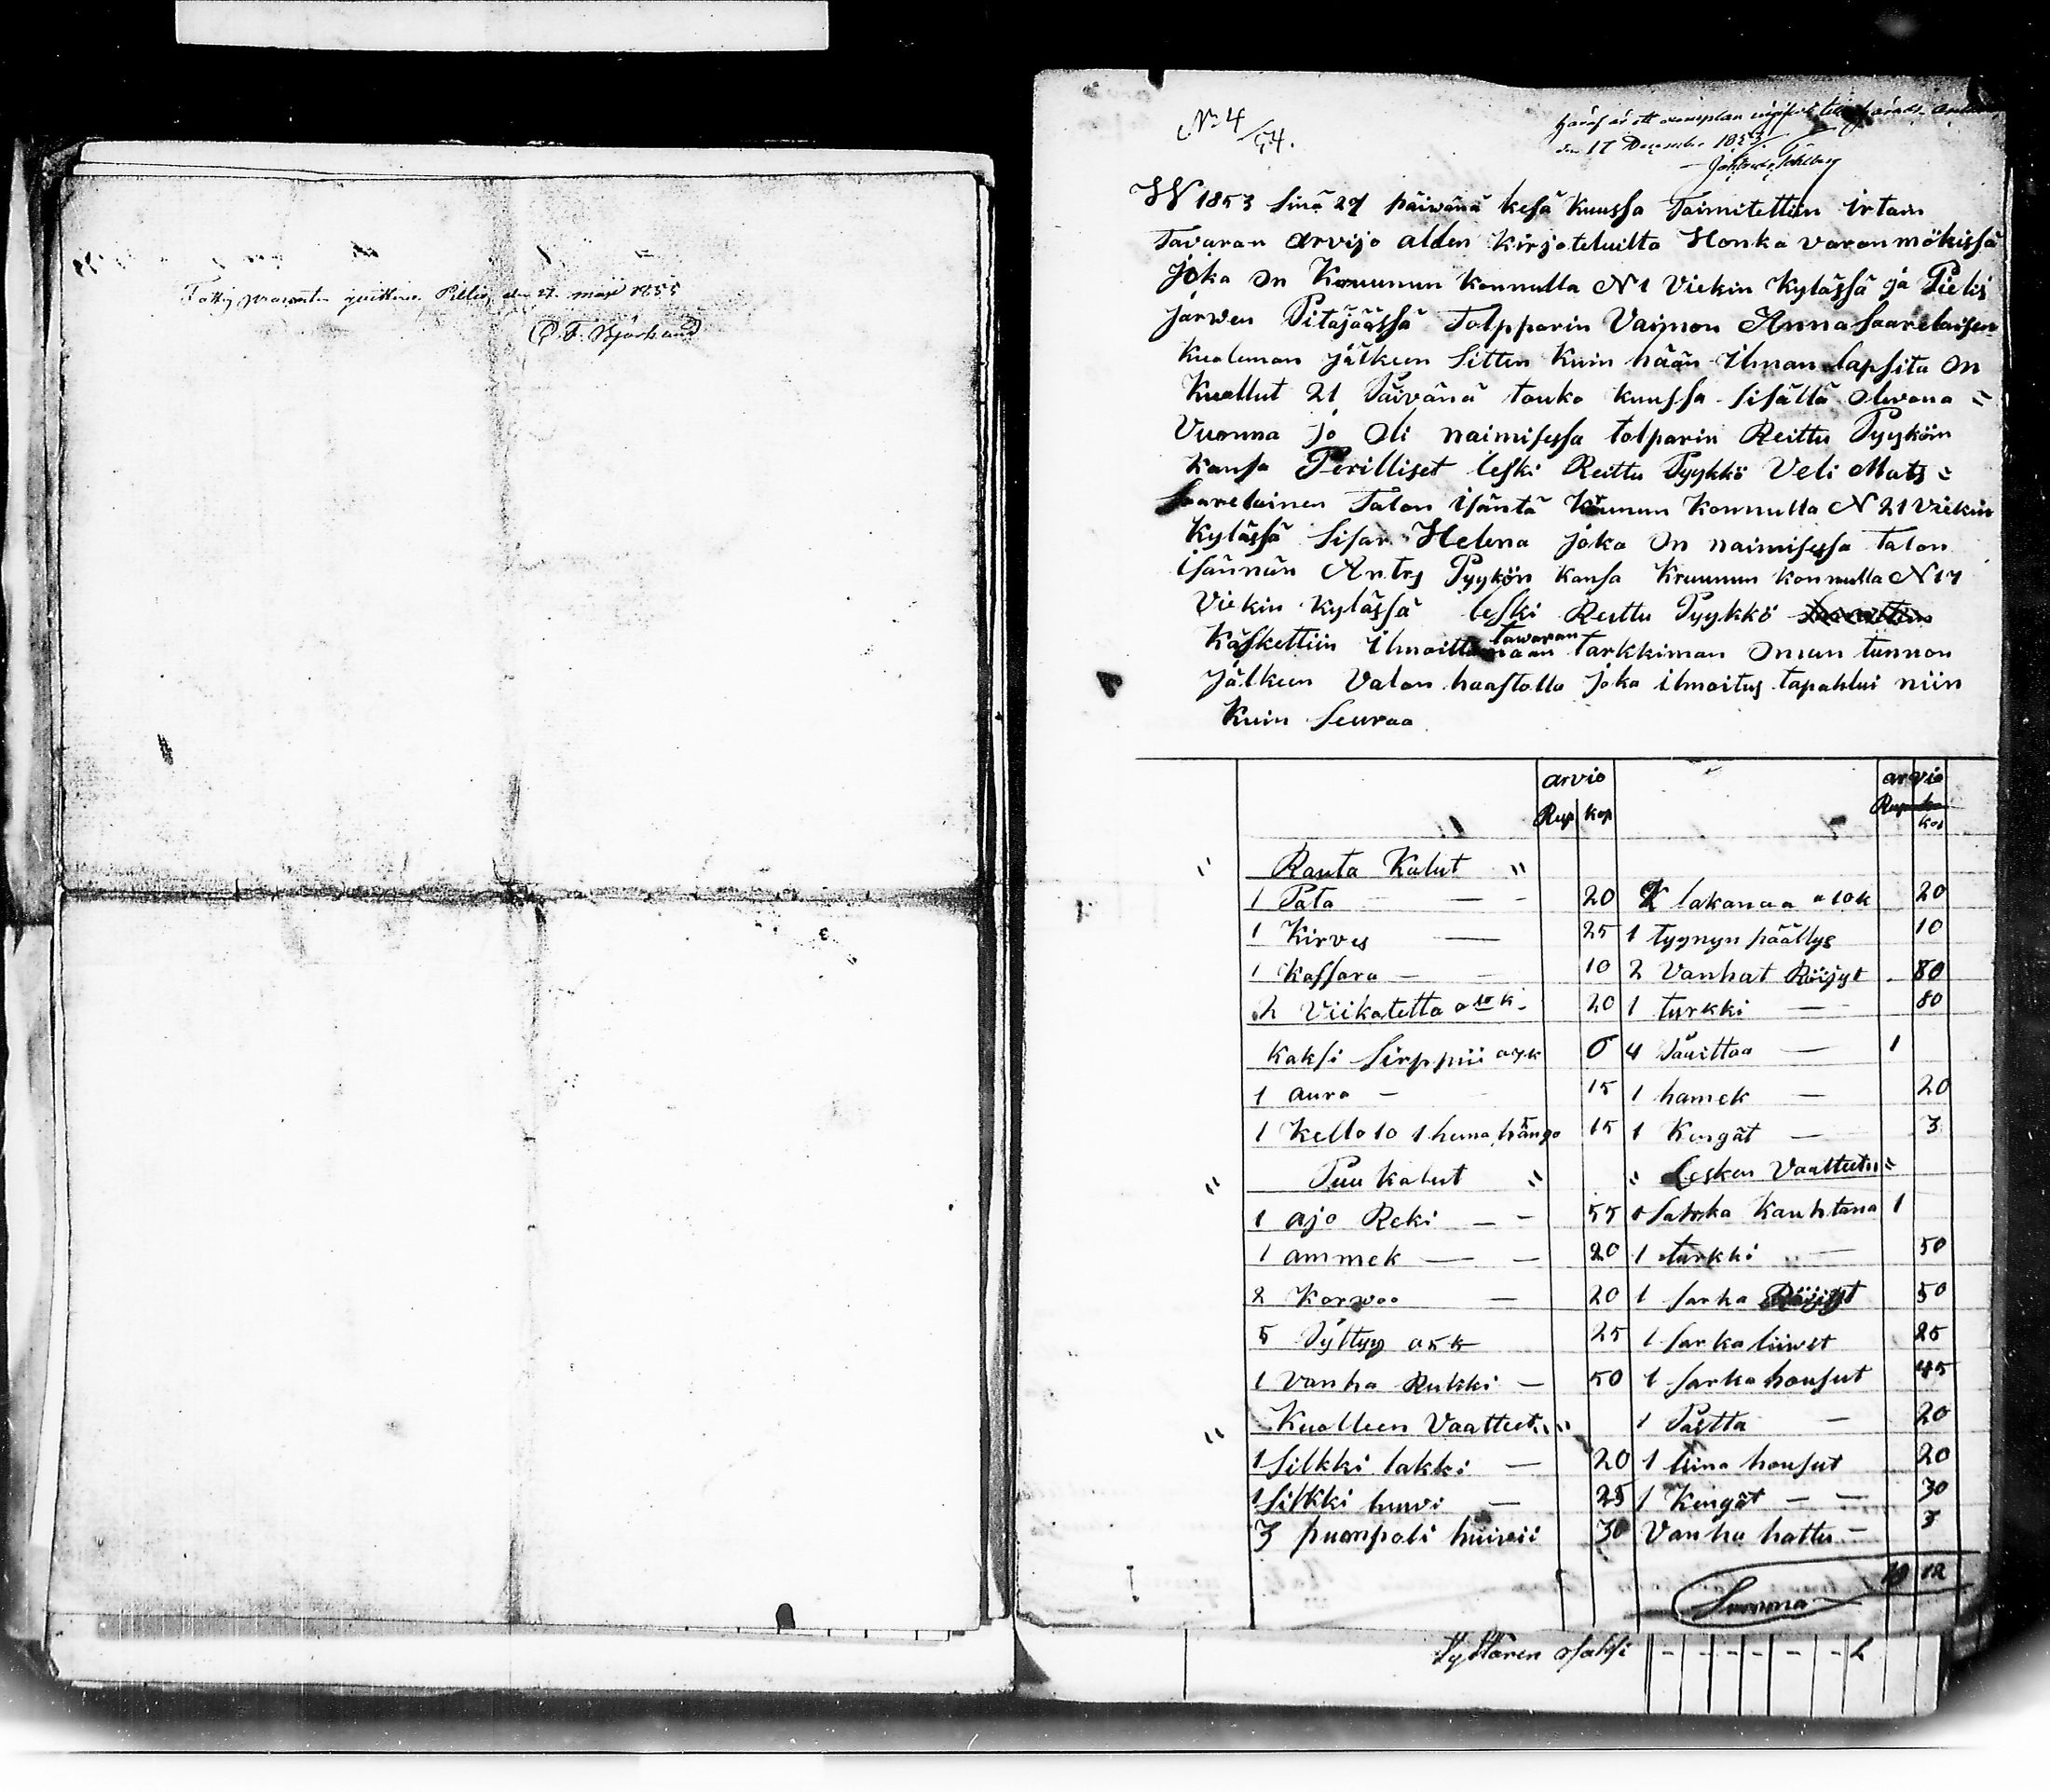 Fattig procenten quitteras, Pielis, den 21 maji 1855
C. F. Björklund
No 4/54.
Häraf är ett exemplar
den 17 December 1853
W 1853 sinä 27 päiwänä kesä kuussa Toimitettiin irtain
Tavaran arvijo allen kirjoteluilta Honka varan mökissä
joka on Kruunun konnulla N 1 Viekin kylässä ja Pielis
järwen Pitäjäässä Tolpparin Vaimon Anna Saarelaisen
Kuoleman jälkeen sitten kuin hään ilman lapsita on
Kuollut 21 Päivänä touko kuussa sisällä olevana =
Vuonna jo oli naimisessa tolparin Reittu Pyykön
kansa Perilliset leski Reittu Pyykkö Veli Mats =
Saarelainen Talon isäntä Kruunun konnulla N 21 Viekin
Kylässä sisar Helena joka on naimisessa talon
isännän Antrs Pyykön kansa Kruunun konnulla N 17
Viekin kylässä leski Reittu Pyykkö
käskettiin ilmoittamaan tawaran tarkkiman oman tunnon
jälkeen Valan haastolla joka ilmoitus tapahtui niin
kuin seuraa
arvio arvio
Rup kop Rup kop
" Rauta Kalut "
1 Pata — — 20 2 lakanaa a 10 k 20
1 Kirves — 25 1 tyynyn päällys 10
1 Kassara — — 10 2 Vanhat Röijyt 80
2 Viikatetta a 10 k - 20 1 turkki — 80
Kaksi Sirppii a 3 k 6 4 Paittaa — 1
1 aura — 15 1 hamek — 20
1 Kello 10 1 heinä hango 15 1 Kengät — 3
" Puu kalut " " Lesken Vaatteet "
1 ajo Reki — — 55 1 Sarka Kauhtana 1
1 ammek — — 20 1 turkki — 50
2 Korwoo — 20 1 sarka Röijyt 50
5 Pyttyy a 5 k 25 1 sarka liiwit 25
1 Vanha Rukki — 50 1 sarka housut 45
" Kuolleen Vaatteet " 1 Paitta — 20
1 Silkki lakki — 20 1 liina housut 20
1 Silkki huivi — 25 1 Kengät — — 30
3 puonpoli huivii 30 Vanha hattu — 3
Summa 10 12